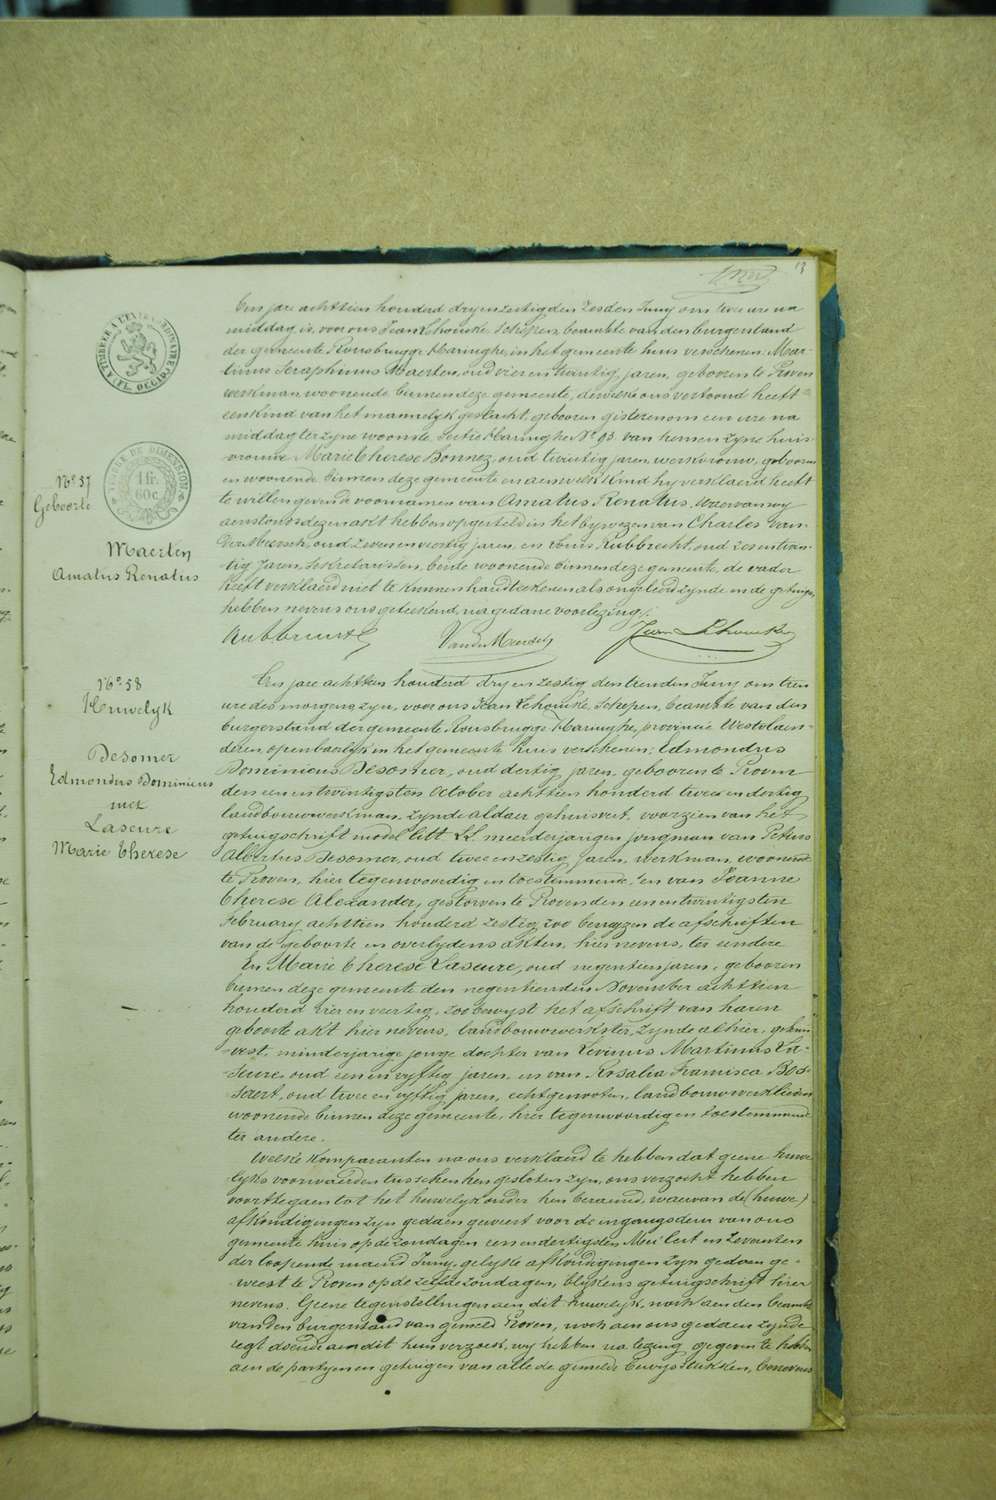 13
TIMBRE A L'EXTRAORDINAIRE
(FL. OCCID.)
Een jare achttien honderd dry en zestig den zesden Juny om twee ure na
middag is voor ons Jean Lhoucke Schepen, beambte van den burgerstand
der gemeente Rousbrugge Haringhe, in het gemeente huis verschenen: Maer-
tinus Seraphinus Maerten, oud vier en twintig jaren, geboren te Proven
werkman woonende binnen deze gemeente, dewelke ons vertoond heeft
een kind van het mannelyk geslacht, geboren gisteren om een ure na
middag ter zyne woonste, sectie Haringhe No. 93. van hem en zyne huis-
vrouwe Marie Therese Bonnez, oud twintig jaren, werkvrouw, geboren
en woonende binnen deze gemeente en aen welk kind hy verklaerd heeft
te willen geven de voornamen van Amatus Renatus. Waer van wy
aenstonds dezen akt hebben opgesteld in het bywezen van Charles Van-
der Meersch, oud zeven en veertig jaren, en Louis Rubbrecht, oud zes en twin-
tig jaren, sekretarissen, beide woonende binnen deze gemeente, de vader
heeft verklaerd niet te kunnen handteekenen als ongeleerd zynde en de getuigen
hebben nevens ons geteekend, na gedane voorlezing.
TIMBRE DE DIMENSION
1 fr.
60 c.
No. 57
Geboorte
Maerten
Amatus Renatus
Rubbrecht
VanderMeersch
Jean Lhoucke
No. 58
Huwelyk
Desomer
Edmondus Dominicus
met
Laseure
Marie Therese
Een jare achttien honderd dry en zestig den tienden Juny om tien
ure des morgens zyn, voor ons Jean Lhoucke, Schepen, beambte van den
burgerstand der gemeente Rousbrugge Haringhe, provincie Westvlaen-
deren, openbaerlyk in het gemeente huis verschenen: Edmondus
Dominicus Desomer, oud dertig jaren, geboren te Proven
den een en twintigsten October achttien honderd twee en dertig
landbouwwerkman, zynde aldaer gehuisvest, voorzien van het
getuigschrift model litt LL. meerderjarigen jongman van Petrus
Albertus Desomer, oud twee en zestig jaren, werkman, woonende
te Proven, hier tegenwoordig en toestemmende, en van Jeanne
Therese Alexander, gestorven te Proven den een en twintigsten
February achttien honderd zestig, zoo bewyzen de afschriften
van de geboorte en overlydens akten, hier nevens, ter eendere
En Marie Therese Laseure, oud negentien jaren, geboren
binnen deze gemeente den negentienden November achttien
honderd vier en veertig, zoo bewyst het afschrift van haren
geboorte akt hier nevens, landbouwwerkster, zynde alhier gehuis-
vest, minderjarige jonge dochter van Livinus Martinus La-
seure, oud een en vyftig jaren, en van Rosalia Francisca Bos-
saert, oud twee en vyftig jaren, echtgenooten, landbouwwerklieden
woonende binnen deze gemeente, hier tegenwoordig en toestemmende
ter andere.
Welke komparanten na ons verklaerd te hebben dat geene huwe-
lyks voorwaerden tusschen hen gesloten zyn, ons verzocht hebben
voort te gaen tot het huwelyk onder hen beraemd, waervan de (huwe)
afkondigingen zyn gedaen geweest voor de ingangsdeur van ons
gemeente huis op de zondagen een en dertigsten Mei lest en zevensten
der loopende maend Juny, gelyke afkondigingen zyn gedaen ge-
weest te Proven op de zelfde zondagen, blykens getuigschrift hier
nevens. Geene tegenstellingen aen dit huwelyk, noch aen den beambte
van den burgerstand van gemeld Proven, noch aen ons gedaen zynde
regt doende aen dit hun verzoek, wy hebben na lezing gegeven te hebben
aen de partyen en getuigen van alle de gemelde bewysstukken, benevens